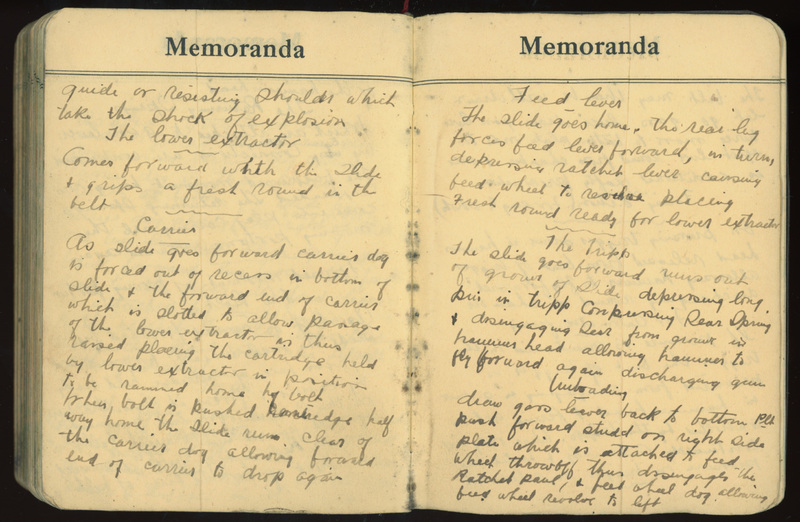 Memoranda
guide or resisting shoulds which
take the shock of explosion
The lower extractor
Comes forward whith the slide
& grips a fresh round in the
belt
Carrier
As slide goes forward carrier dog
is forced out of recess in bottom of
slide & the forward end of carrier
which is slotted to allow passage
of the lower extractor is thus
raised placing the cartridge held
by lower extractor in position
to be rammed home by bolt
When bolt is pushed cartridge half
way home the slide runs clear of
the carrier dog allowing forward
end of carrier to drop again
Memoranda
Feed lever
The slide goes home. the rear lug
forces feed lever forward, in turn
depressing ratchet lever causing
feed wheel to placing
Fresh round ready for lower extractor
The Tripp
The slide goes forward runs out
of groove of slide depressing long
pin in tripp Compressing Rear Spring
& disengaging Sear from groove in
hammer head allowing hammer to
fly forward again discharging gun
Unloading
draw gass lever back to bottom
push forward studd on right side
plate which is attached to feed
wheel throwoff thus disengages the
Ratchet paul & feed wheel dog allowing
feed wheel revolve to left